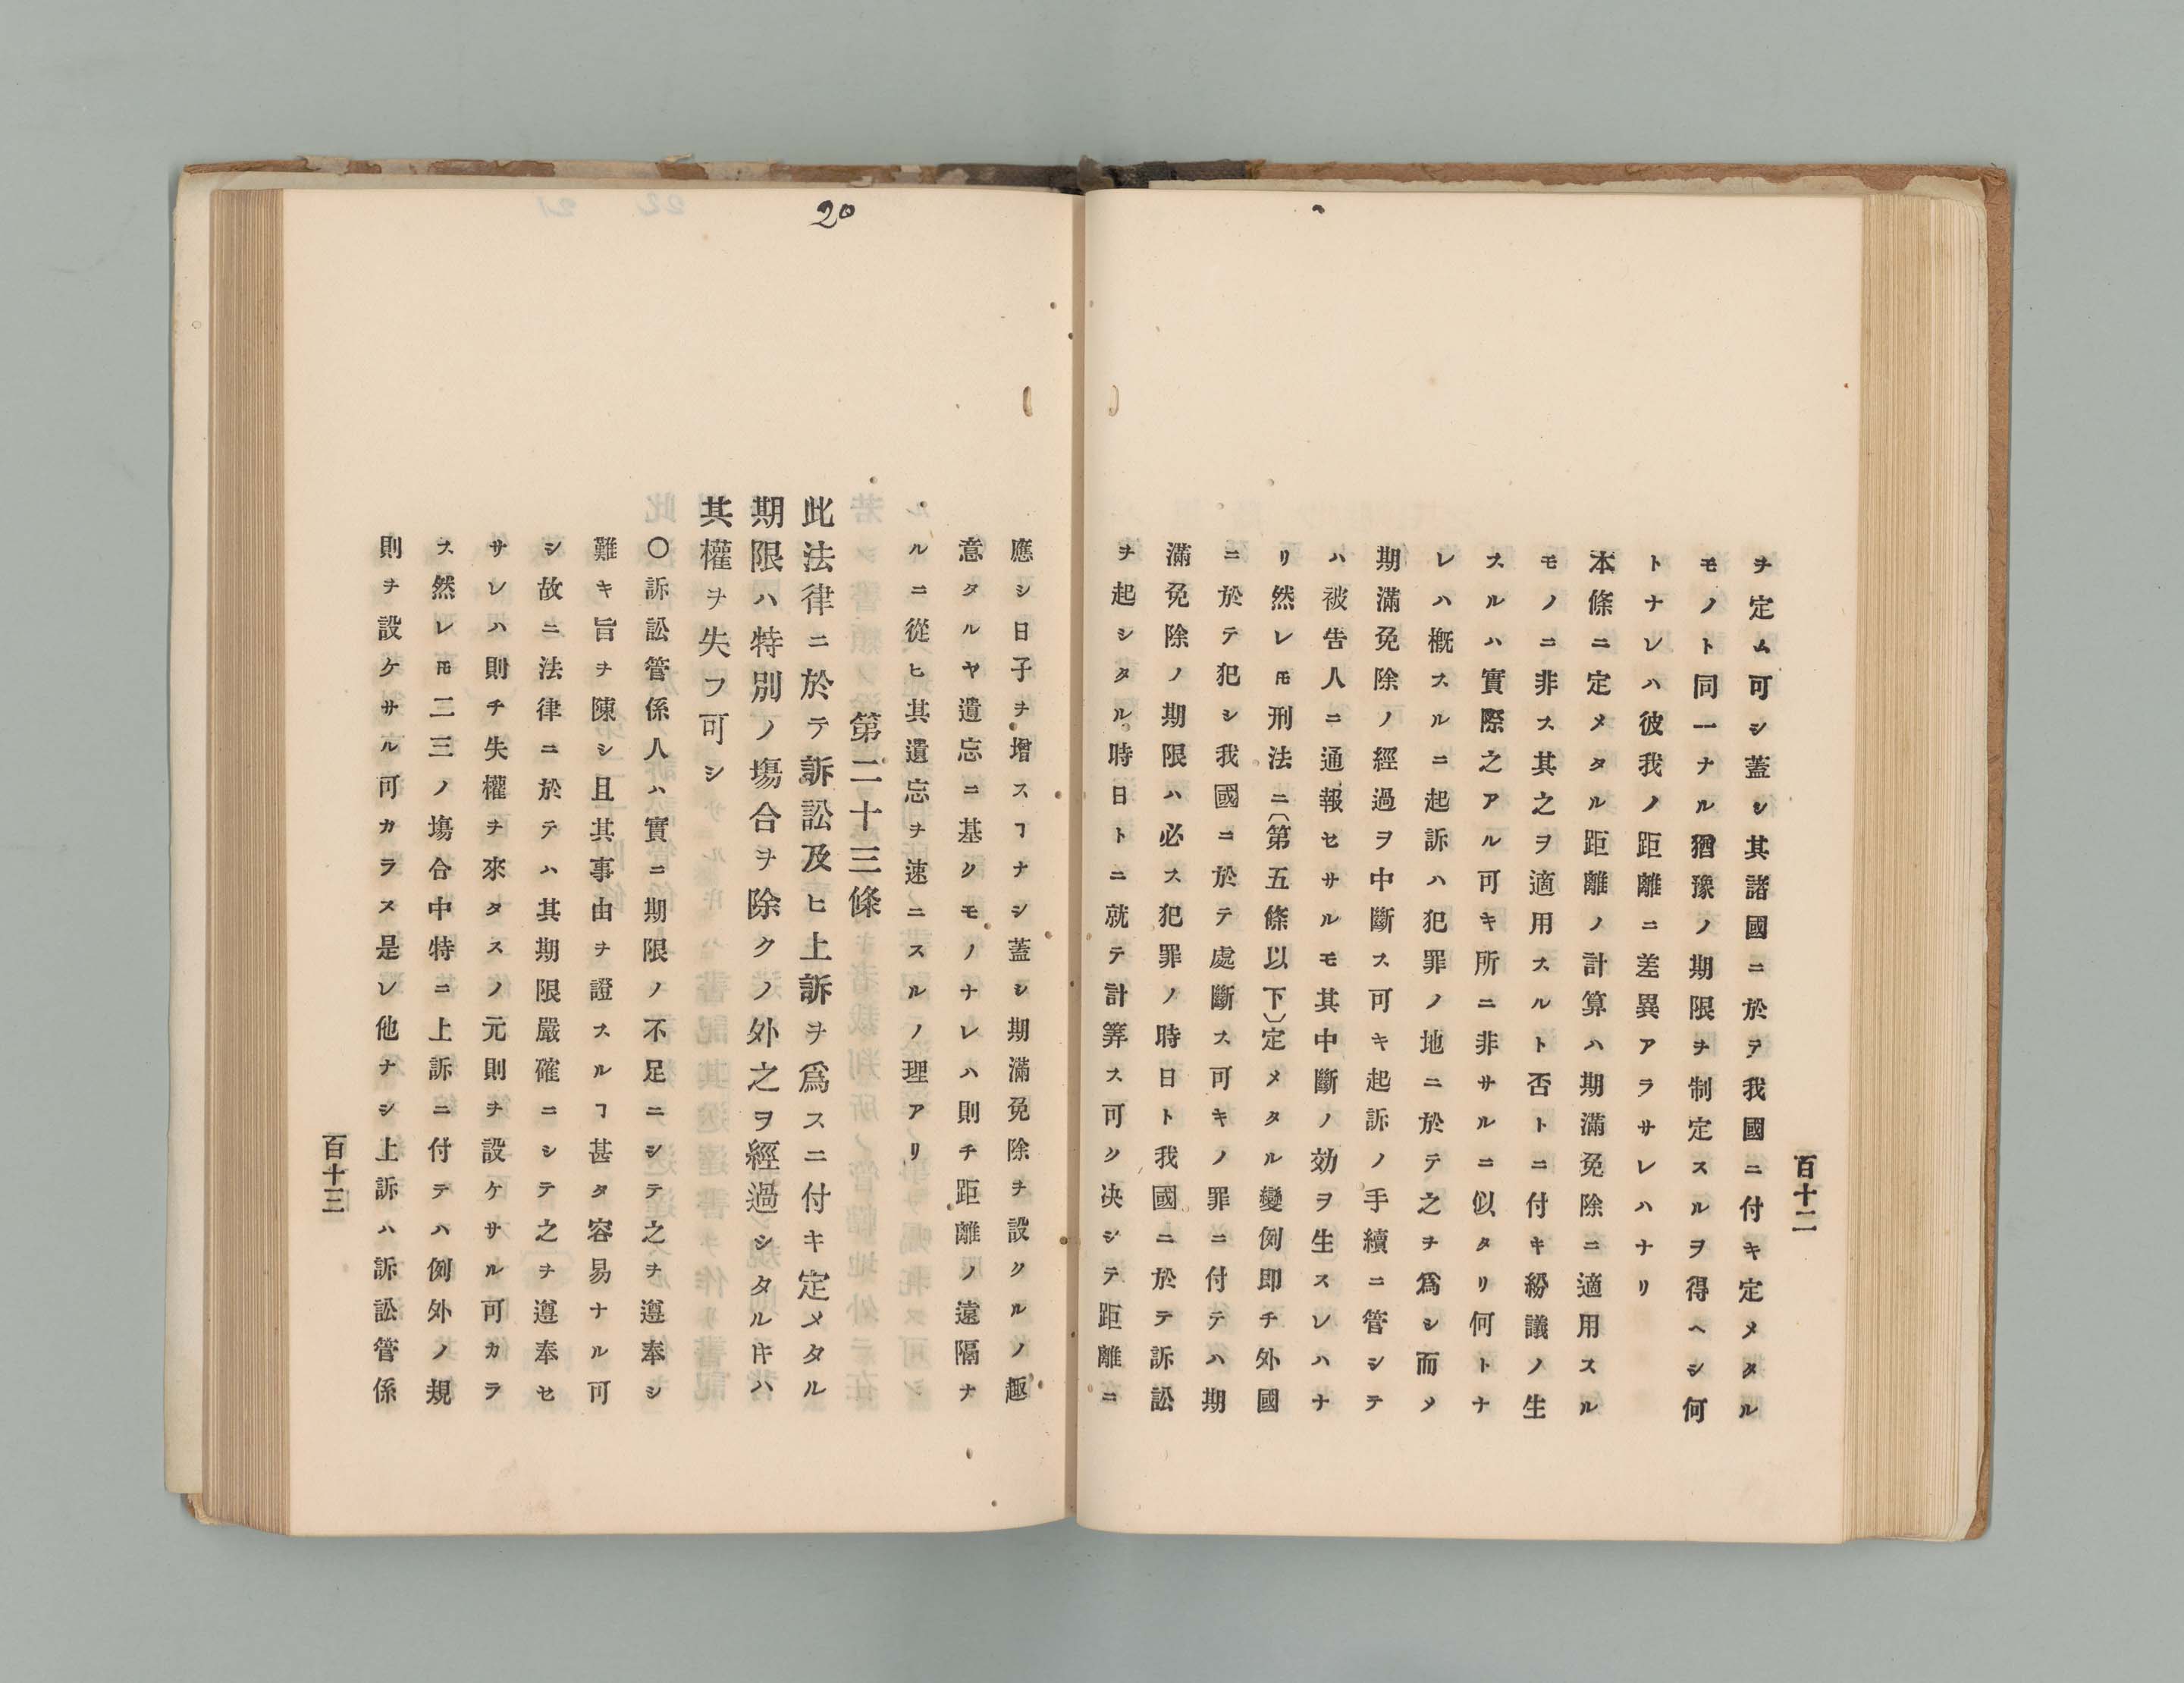 百十二
ヲ定ム可シ蓋シ其諸國ニ於テ我國ニ付キ定メタル
モノト同一ナル猶豫ノ期限ヲ制定スルヲ得ヘシ何
トナレハ彼我ノ距離ニ差異アラサレハナリ
本條ニ定メタル距離ノ計算ハ期滿免除ニ適用スル
モノニ非ス其之ヲ適用スルト否トニ付キ紛議ノ生
スルハ實際之アル可キ所ニ非サルニ似タリ何トナ
レハ概スルニ起訴ハ犯罪ノ地ニ於テ之ヲ爲シ而メ
期滿免除ノ經過ヲ中斷ス可キ起訴ノ手續ニ管シテ
ハ被告人ニ通報セサルモ其中斷ノ効ヲ生スレハナ
リ然レ𪜈刑法ニ〔第五條以下〕定メタル變例即チ外國
ニ於テ犯シ我國ニ於テ處斷ス可キノ罪ニ付テハ期
滿免除ノ期限ハ必ス犯罪ノ時日ト我國ニ於テ訴訟
ヲ起シタル時日トニ就テ計筭ス可ク决シテ距離ニ
20
應シ日子ヲ增スヿナシ蓋シ期滿免除ヲ設クルノ趣
意タルヤ遺忘ニ基クモノナレハ則チ距離ノ遠隔ナ
ルニ從ヒ其遺忘ヲ速ニスルノ理アリ
第二十三條
此法律ニ於テ訴訟及ヒ上訴ヲ爲スニ付キ定メタル
期限ハ特別ノ塲合ヲ除クノ外之ヲ經過シタル𪜈ハ
其權ヲ失フ可シ
〇訴訟管係人ハ實ニ期限ノ不足ニシテ之ヲ遵奉シ
難キ旨ヲ陳シ且其事由ヲ證スルヿ甚タ容易ナル可
シ故ニ法律ニ於テハ其期限嚴確ニシテ之ヲ遵奉セ
サレハ則チ失權ヲ來タスノ元則ヲ設ケサル可カラ
ス然レ𪜈二三ノ塲合中特ニ上訴ニ付テハ例外ノ規
則ヲ設ケサル可カラス是レ他ナシ上訴ハ訴訟管係
百十三